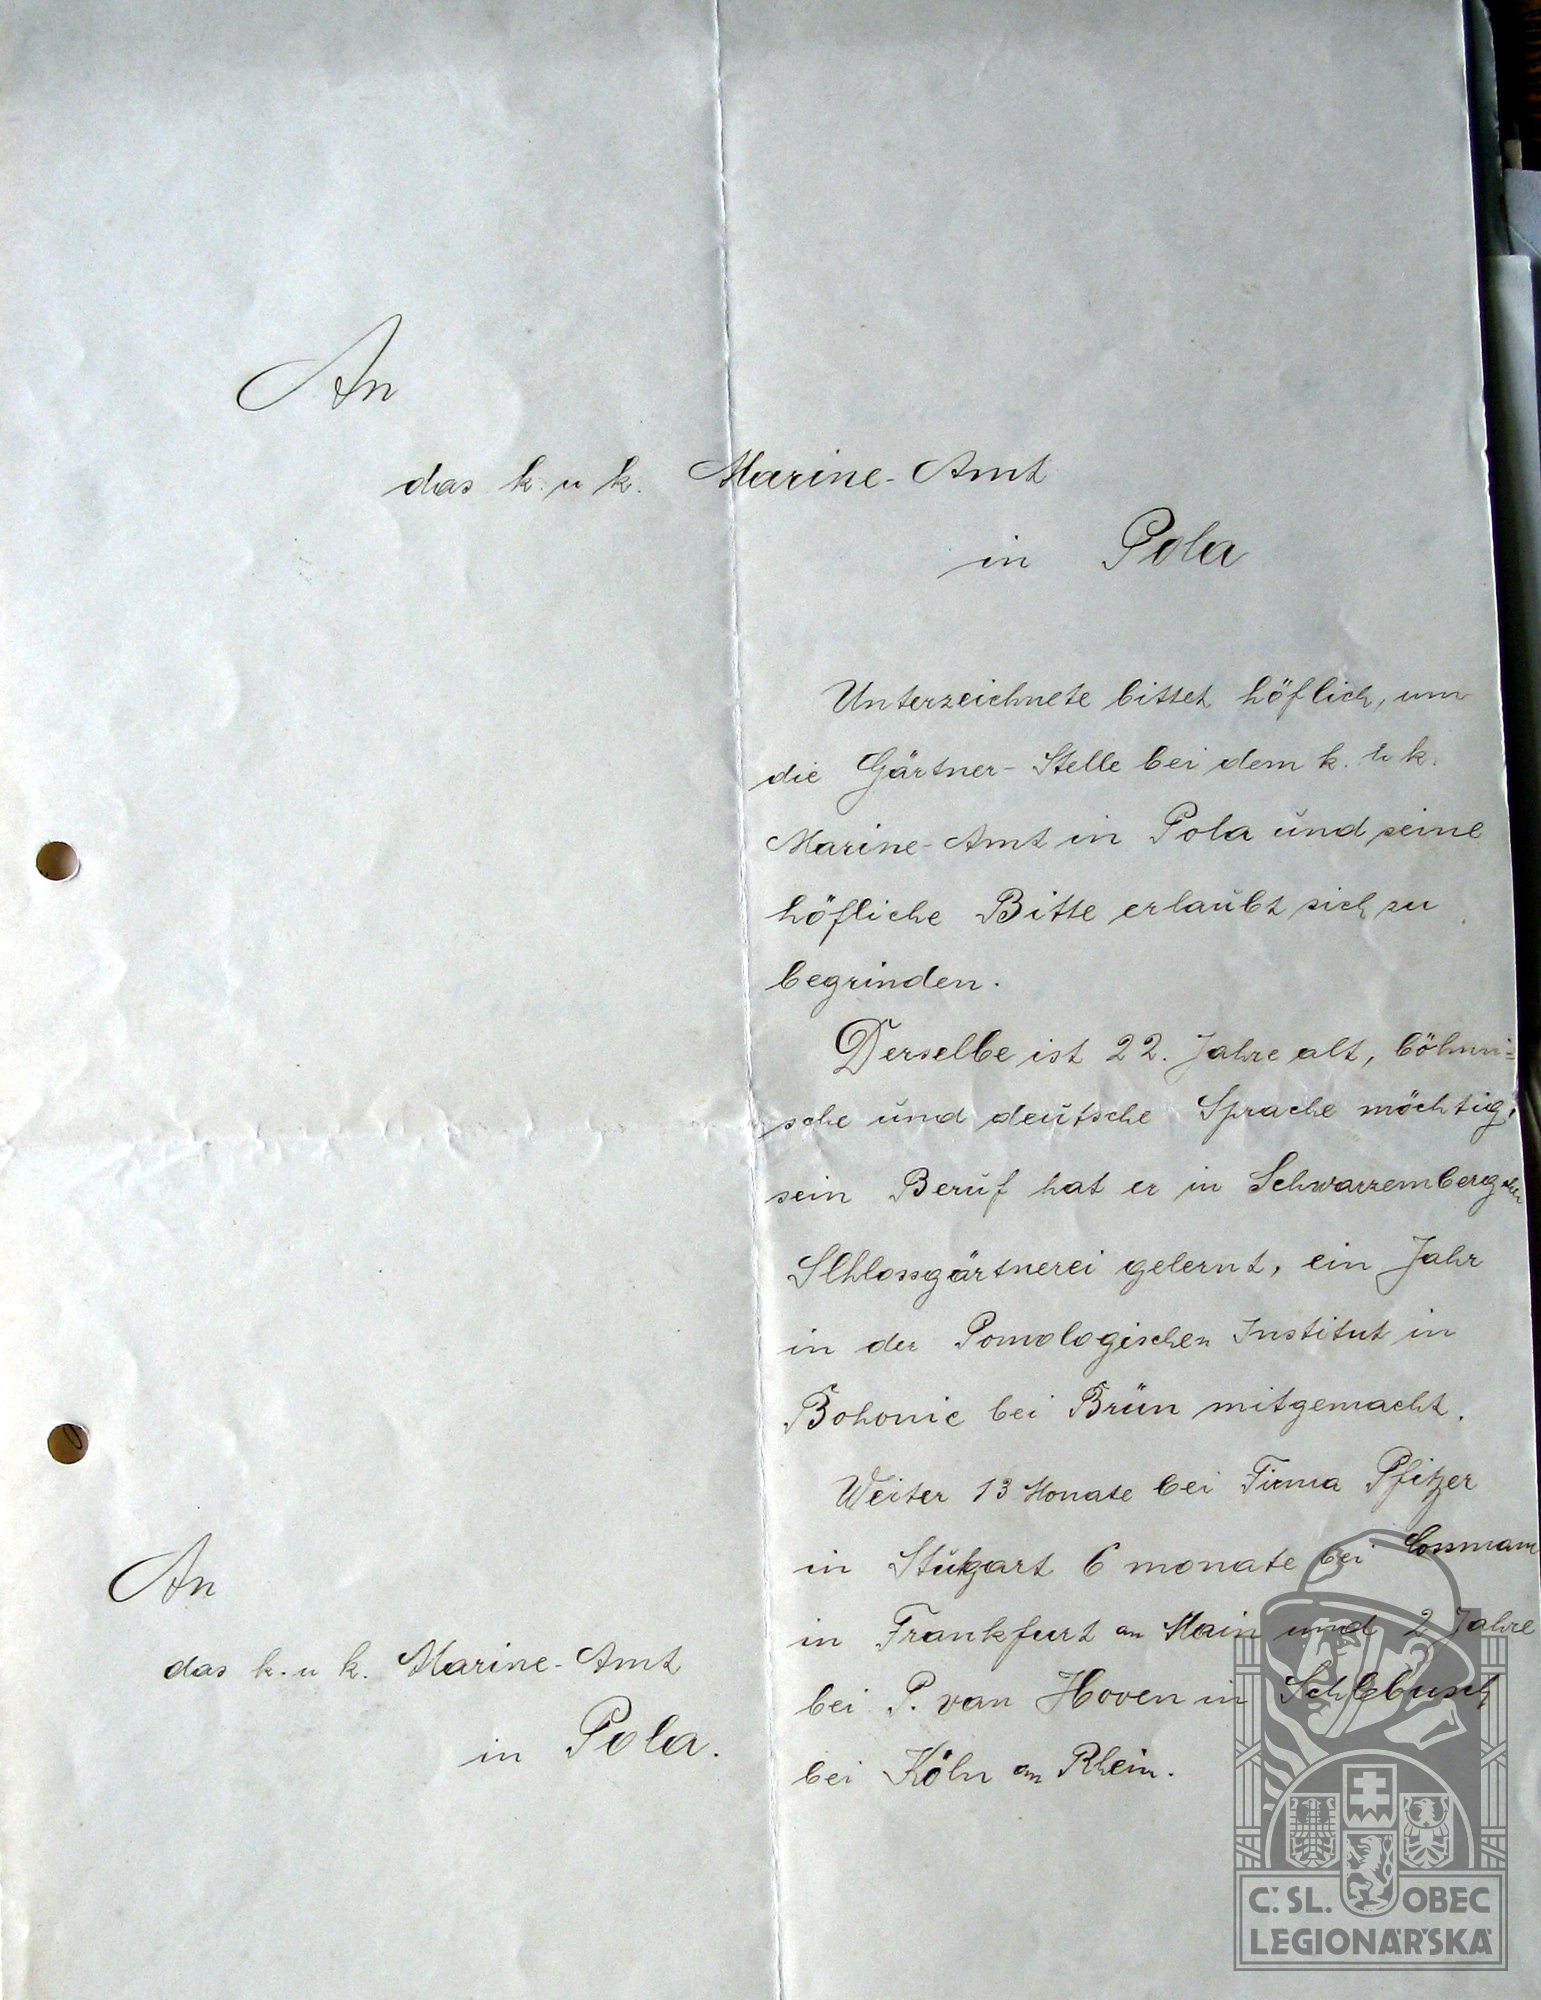 An
das k. u k. Marine-Amt
in Pola
Unterzeichnete bittet höflich, um
die Gärtner-Stelle bei dem k. u k.
Marine-Amt in Pola und seine
höfliche Bitte erlaubt sich zu
begrinden.
Derselbe ist 22. Jahre alt, böhmi=
sche und deutsche Sprache möchtig,
sein Beruf hat er in Schwarzemberg
Schlossgärtnerei gelernt, ein Jahr
in der Pomologischen Institut in
Bohonic bei Brün mitgemacht.
Weiter 13 Monate bei Firma Pfitzer
in Stutgart 6 monate bei Cossmann
in Frankfurt an Main und 2 Jahre
bei P. van Hoven in Schlebusch
bei Köln an Rhein.
An
das k. u k. Marine-Amt
in Pola.
Č.SL. OBEC
LEGIONÁŘSKÁ